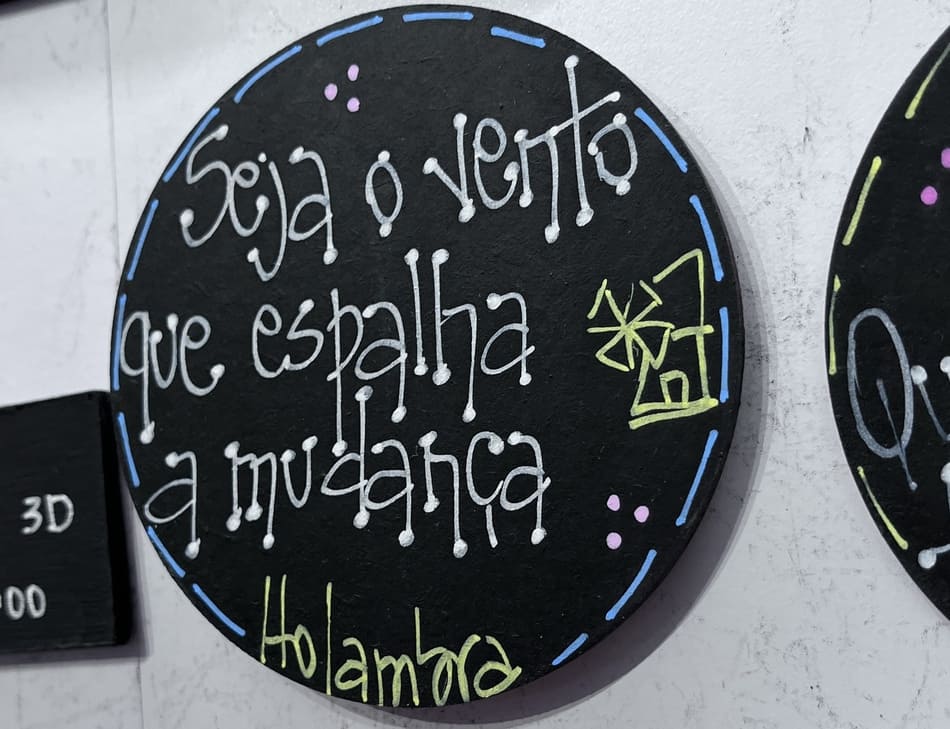 Seja o vento
que espalha
a mudança
Holambra
3D
00